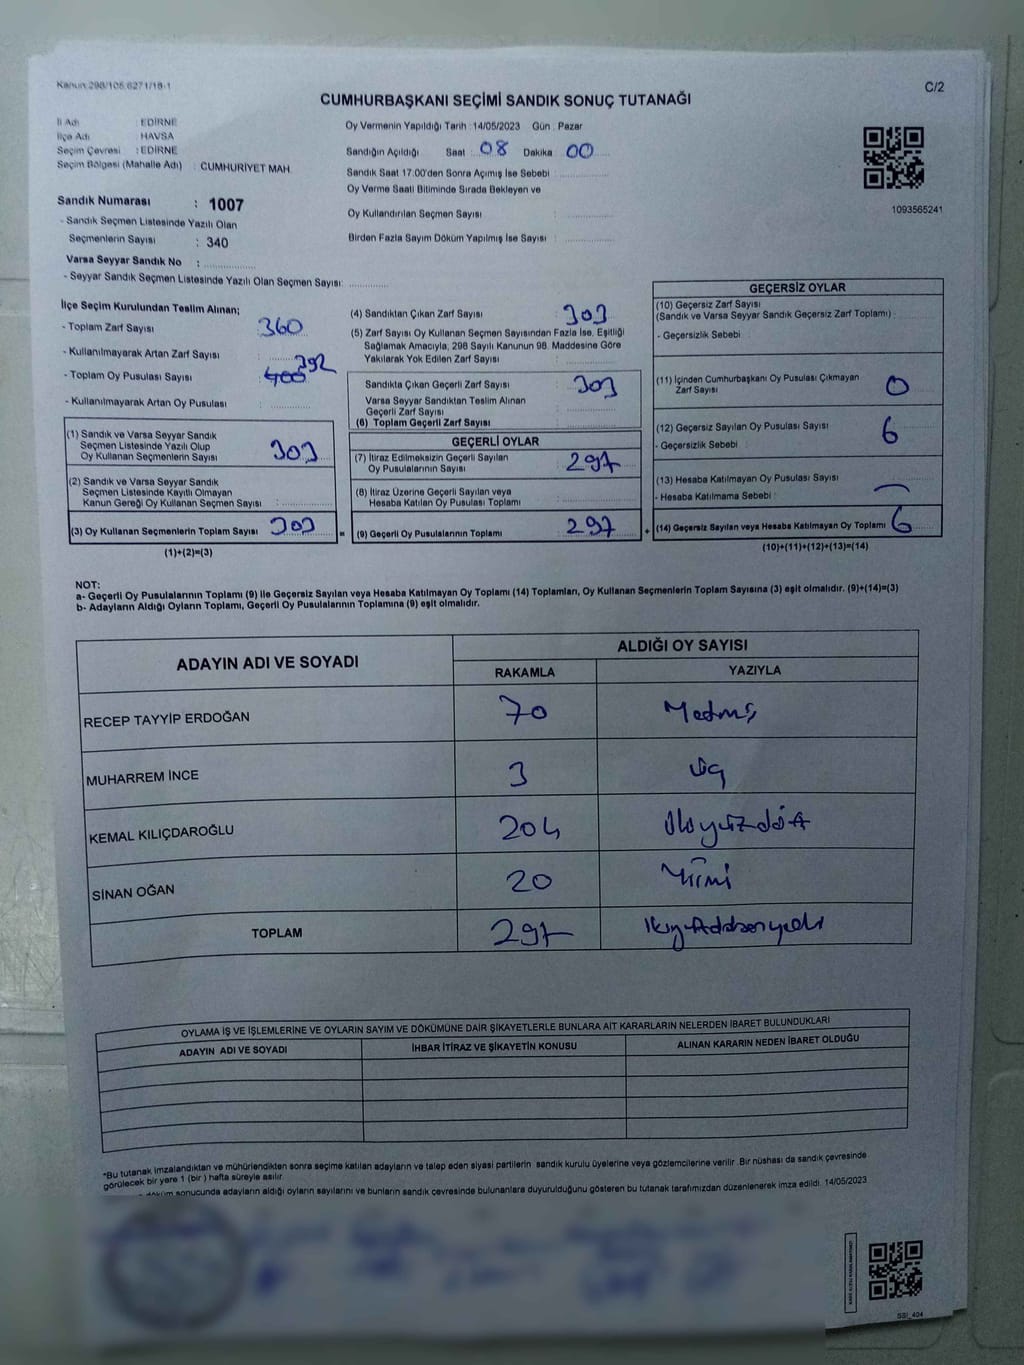 Kanun:298/105,6271/18-1
C/2
CUMHURBAŞKANI SEÇİMİ SANDIK SONUÇ TUTANAĞI
İl Adı : EDİRNE
İlçe Adı : HAVSA
Seçim Çevresi : EDİRNE
Seçim Bölgesi (Mahalle Adı) : CUMHURİYET MAH.
Sandık Numarası : 1007
- Sandık Seçmen Listesinde Yazılı Olan
Seçmenlerin Sayısı : 340
Varsa Seyyar Sandık No :
- Seyyar Sandık Seçmen Listesinde Yazılı Olan Seçmen Sayısı:
Oy Vermenin Yapıldığı Tarih : 14/05/2023 Gün : Pazar
Sandığın Açıldığı Saat : 08 Dakika : 00
Sandık Saat 17.00'den Sonra Açımış İse Sebebi :
Oy Verme Saati Bitiminde Sırada Bekleyen ve
Oy Kullandırılan Seçmen Sayısı :
Birden Fazla Sayım Döküm Yapılmış İse Sayısı :
1093565241
İlçe Seçim Kurulundan Teslim Alınan;
- Toplam Zarf Sayısı : 360
- Kullanılmayarak Artan Zarf Sayısı :
- Toplam Oy Pusulası Sayısı : 400 392
- Kullanılmayarak Artan Oy Pusulası :
(1) Sandık ve Varsa Seyyar Sandık
Seçmen Listesinde Yazılı Olup
Oy Kullanan Seçmenlerin Sayısı : 303
(2) Sandık ve Varsa Seyyar Sandık
Seçmen Listesinde Kayıtlı Olmayan
Kanun Gereği Oy Kullanan Seçmen Sayısı :
(3) Oy Kullanan Seçmenlerin Toplam Sayısı : 303
(1)+(2)=(3)
(4) Sandıktan Çıkan Zarf Sayısı : 303
(5) Zarf Sayısı Oy Kullanan Seçmen Sayısından Fazla İse, Eşitliği
Sağlamak Amacıyla, 298 Sayılı Kanunun 98. Maddesine Göre
Yakılarak Yok Edilen Zarf Sayısı :
Sandıkta Çıkan Geçerli Zarf Sayısı : 303
Varsa Seyyar Sandıktan Teslim Alınan
Geçerli Zarf Sayısı :
(6) Toplam Geçerli Zarf Sayısı :
GEÇERLİ OYLAR
(7) İtiraz Edilmeksizin Geçerli Sayılan
Oy Pusulalarının Sayısı : 297
(8) İtiraz Üzerine Geçerli Sayılan veya
Hesaba Katılan Oy Pusulası Toplamı :
= (9) Geçerli Oy Pusulalarının Toplamı : 297 +
GEÇERSİZ OYLAR
(10) Geçersiz Zarf Sayısı
(Sandık ve Varsa Seyyar Sandık Geçersiz Zarf Toplamı) :
- Geçersizlik Sebebi :
(11) İçinden Cumhurbaşkanı Oy Pusulası Çıkmayan
Zarf Sayısı : 0
(12) Geçersiz Sayılan Oy Pusulası Sayısı : 6
- Geçersizlik Sebebi :
(13) Hesaba Katılmayan Oy Pusulası Sayısı :
- Hesaba Katılmama Sebebi :
(14) Geçersiz Sayılan veya Hesaba Katılmayan Oy Toplamı : 6
(10)+(11)+(12)+(13)=(14)
NOT:
a- Geçerli Oy Pusulalarının Toplamı (9) ile Geçersiz Sayılan veya Hesaba Katılmayan Oy Toplamı (14) Toplamları, Oy Kullanan Seçmenlerin Toplam Sayısına (3) eşit olmalıdır. (9)+(14)=(3)
b- Adayların Aldığı Oyların Toplamı, Geçerli Oy Pusulalarının Toplamına (9) eşit olmalıdır.
ADAYIN ADI VE SOYADI
ALDIĞI OY SAYISI
RAKAMLA YAZIYLA
RECEP TAYYİP ERDOĞAN 70 Yetmiş
MUHARREM İNCE 3 üç
KEMAL KILIÇDAROĞLU 204 ikiyüzdört
SİNAN OĞAN 20 Yirmi
TOPLAM 297
OYLAMA İŞ VE İŞLEMLERİNE VE OYLARIN SAYIM VE DÖKÜMÜNE DAİR ŞİKAYETLERLE BUNLARA AİT KARARLARIN NELERDEN İBARET BULUNDUKLARI
ADAYIN ADI VE SOYADI İHBAR İTİRAZ VE ŞİKAYETİN KONUSU ALINAN KARARIN NEDEN İBARET OLDUĞU
*Bu tutanak imzalandıktan ve mühürlendikten sonra seçime katılan adayların ve talep eden siyasi partilerin sandık kurulu üyelerine veya gözlemcilerine verilir. Bir nüshası da sandık çevresinde
görülecek bir yere 1 (bir) hafta süreyle asılır.
döküm sonucunda adayların aldığı oyların sayılarını ve bunların sandık çevresinde bulunanlara duyurulduğunu gösteren bu tutanak tarafımızdan düzenlenerek imza edildi. 14/05/2023
SSI_404